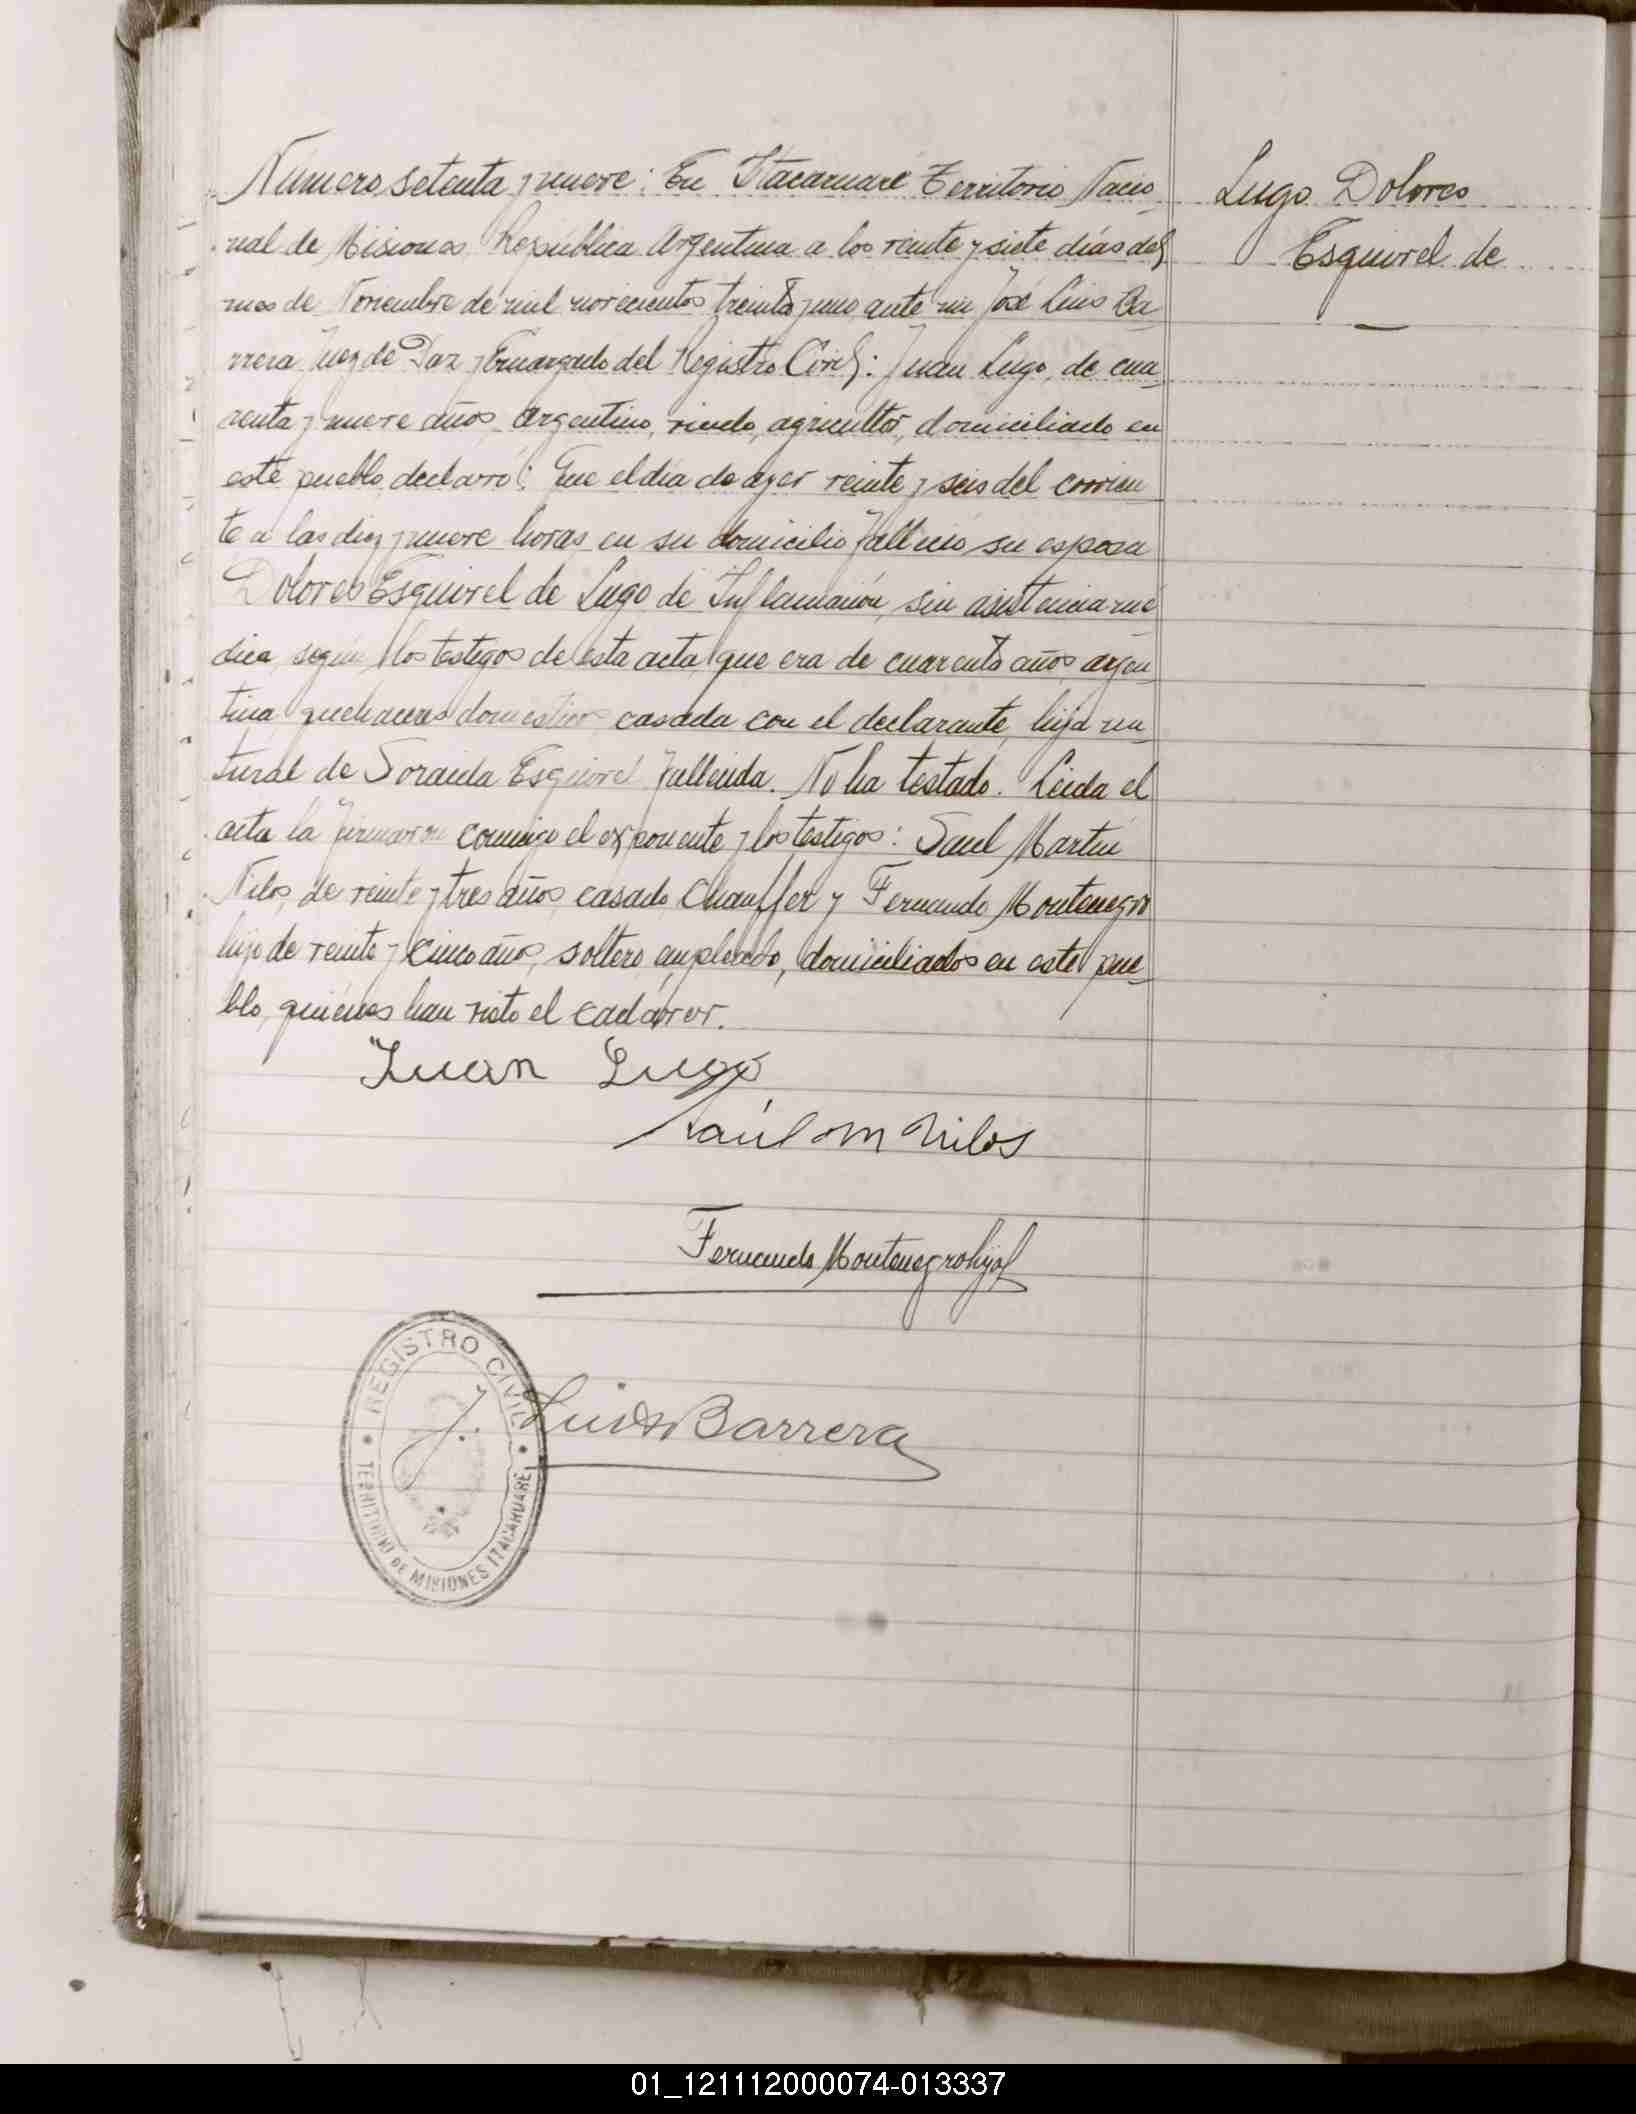 Número setenta y nueve: En Itacaruaré Territorio Nacio
nal de Misiones República Argentina a los veinte y siete días del
mes de Noviembre de mil novecientos treinta y uno, ante mi José Luis Ba
rrera Juez de Paz y Encargado del Registro Civil: Juan Lugo, de cua
renta y nueve años, argentino, viudo, agricultor, domiciliado en
este pueblo declaró: Que el día de ayer veinte y seis del corrien
te a las diez y nueve horas en su domicilio falleció su esposa
Dolores Esquivel de Lugo de Inflamación, sin asistencia mé
dica, según los testigos de esta acta, que era de cuarenta años, argen
tina, quehaceres domesticos casada con el declarante, hija na
tural de Soraida Esquivel fallecida. No ha testado. Leida el
acta la firmaron conmigo el exponente y los testigos: Saul Martín
Nilos, de veinte y tres años, casado, Chauffer y Fernando Montenegro
hijo de veinte y cinco años, soltero, empleado, domiciliados en este pue-
blo, quiénes han visto el cadáver.
Juan Lugo
Saúl M Nilos
Fernando Montenegro hijo
J. Luis Barrera
REGISTRO CIVIL
TERRITORIO DE MISIONES ITACARUARE
Lugo Dolores
Esquivel de
01_121112000074-013337